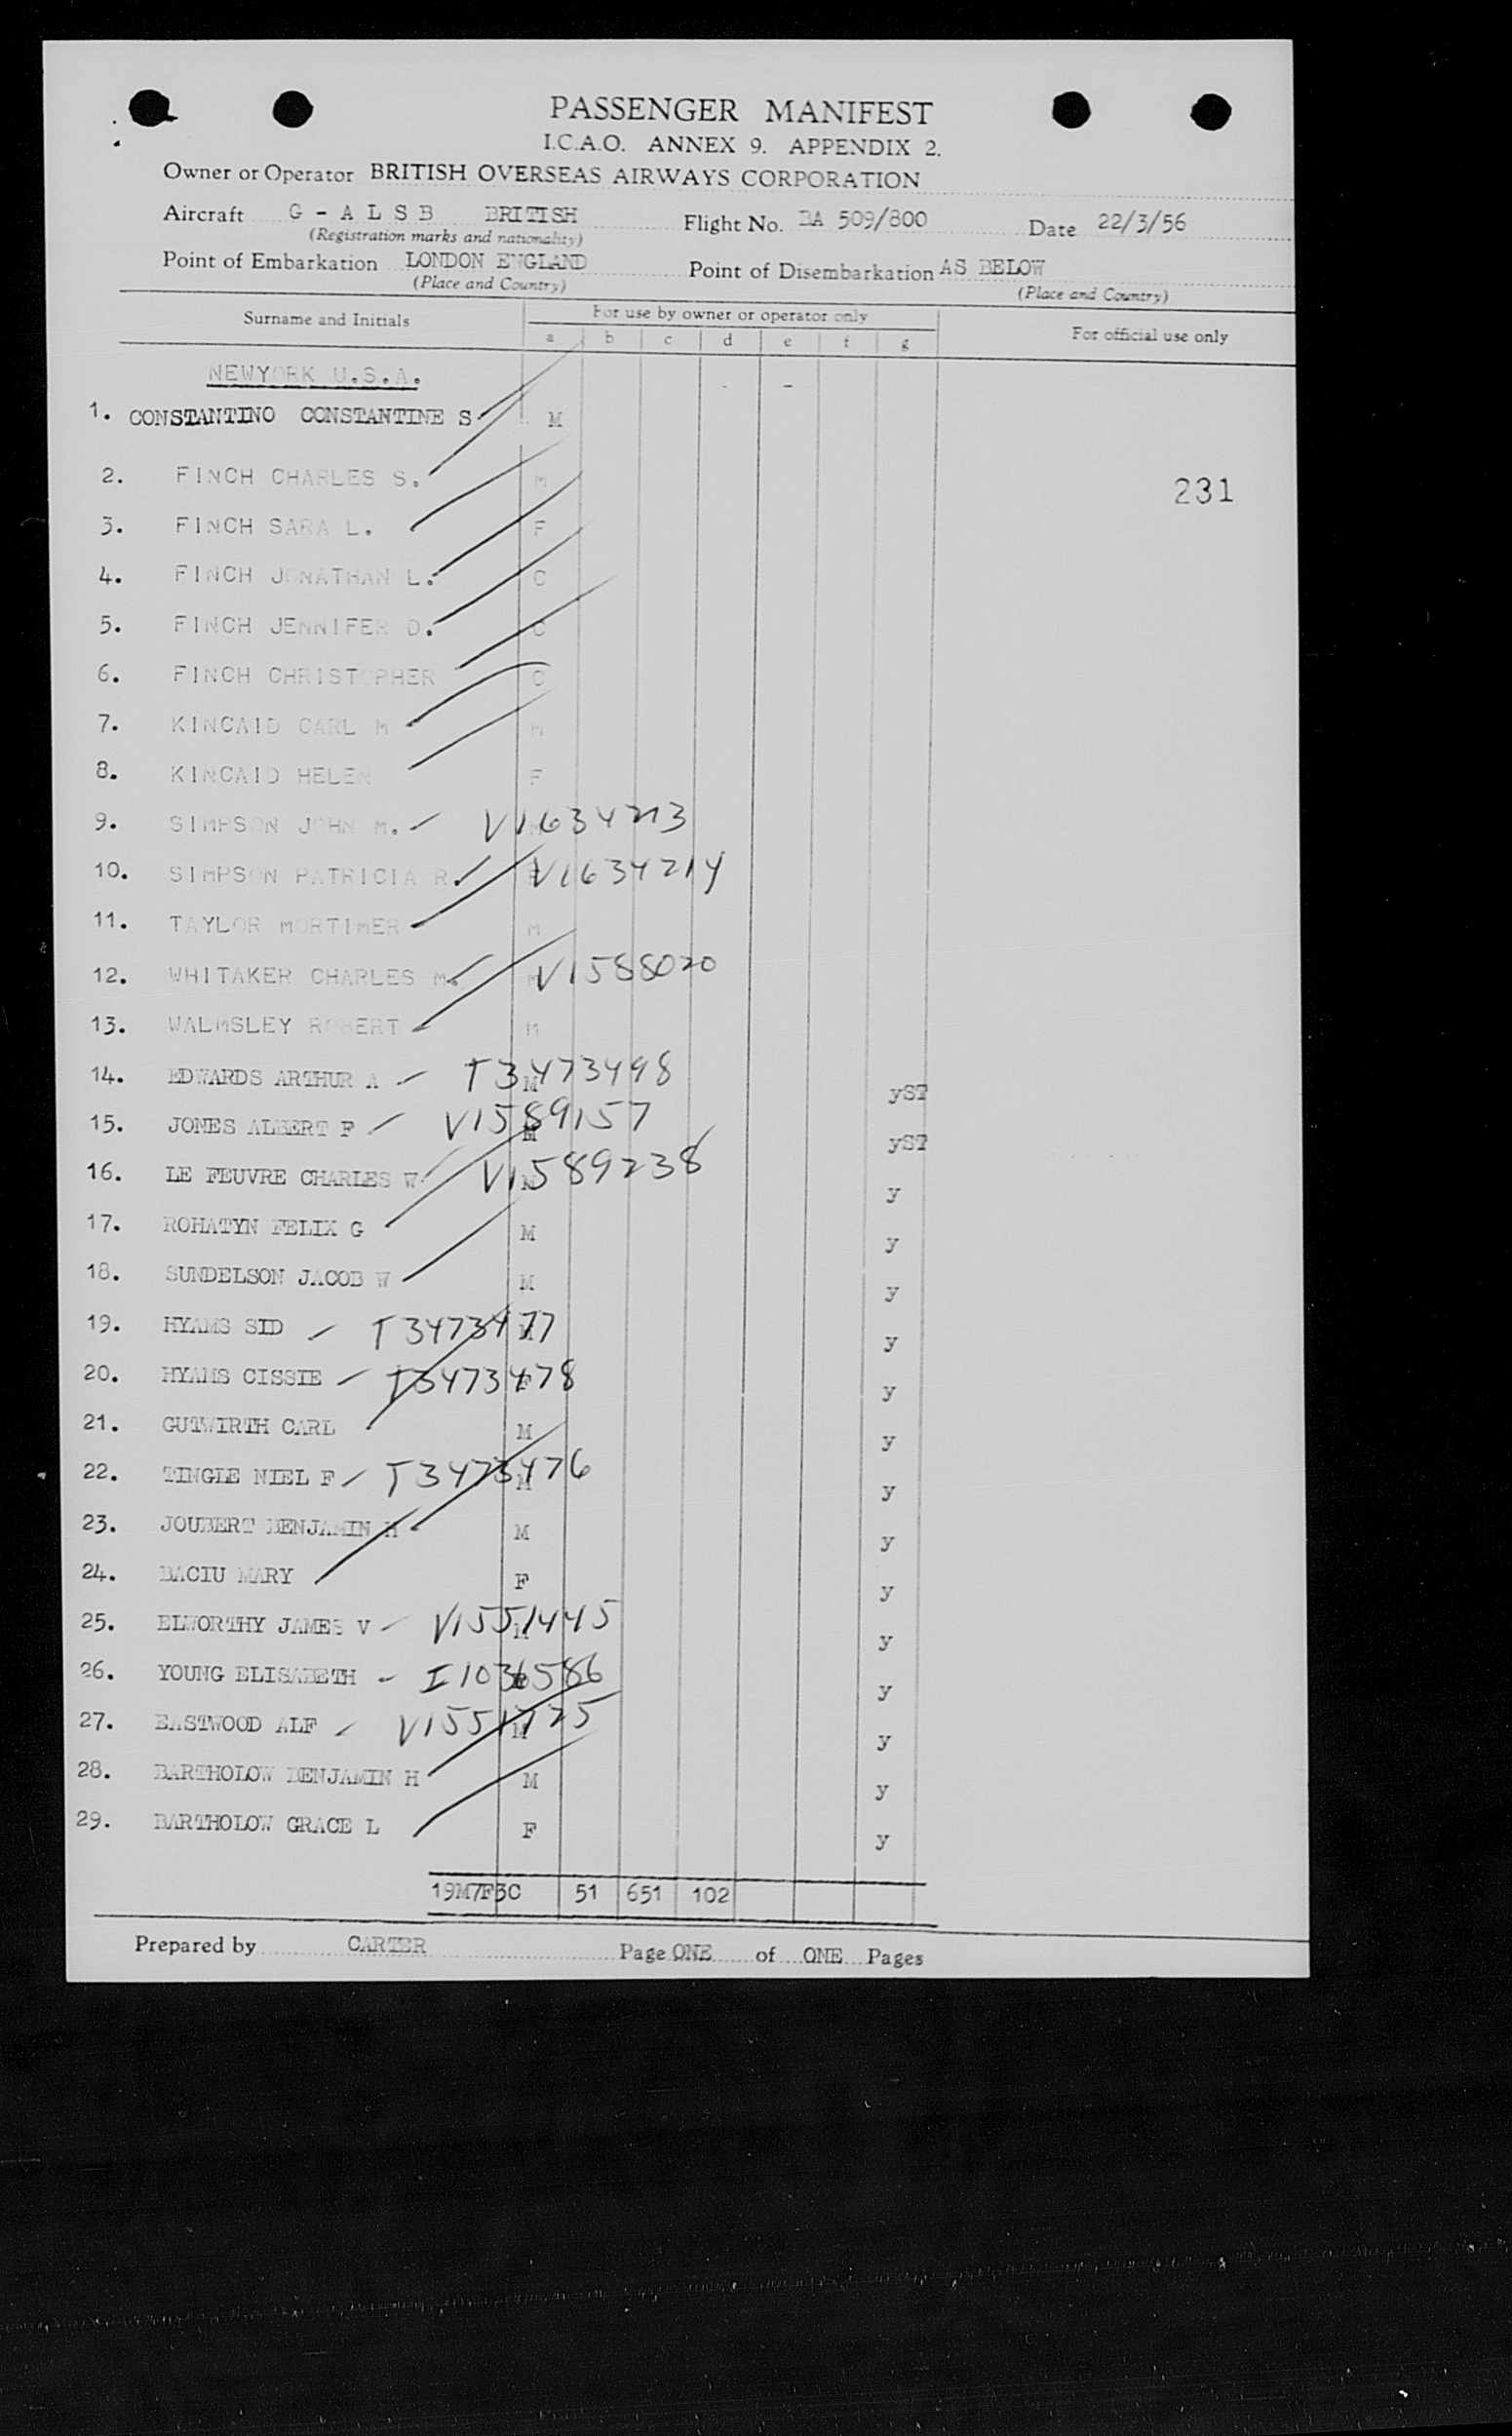 PASSENGER MANIFEST
I.C.A.O. ANNEX 9. APPENDIX 2.
Owner or Operator BRITISH OVERSEAS AIRWAYS CORPORATION
Aircraft G - A L S B BRITISH Flight No. BA 509/800 Date 22/3/56
(Registration marks and nationality)
Point of Embarkation LONDON ENGLAND Point of Disembarkation AS BELOW
(Place and Country) (Place and Country)
Surname and Initials For use by owner or operator only For official use only
a b c d e f g
NEWYORK U.S.A.
1. CONSTANTINO CONSTANTINE S M
2. FINCH CHARLES S. M
231
3. FINCH SARA L. F
4. FINCH JONATHAN L. C
5. FINCH JENNIFER D. C
6. FINCH CHRISTOPHER C
7. KINCAID CARL M M
8. KINCAID HELEN F
9. SIMPSON JOHN M. V1634213
10. SIMPSON PATRICIA R. V1634214
11. TAYLOR MORTIMER M
12. WHITAKER CHARLES M. M V1588020
13. WALMSLEY ROBERT M
14. EDWARDS ARTHUR A T3473498 M yST
15. JONES ALBERT F V1589157 M yST
16. LE FEUVRE CHARLES W V1589238 M y
17. ROHATYN FELIX G M y
18. SUNDELSON JACOB W M y
19. HYAMS SID T3473477 M y
20. HYAMS CISSIE T3473478 F y
21. GUTWIRTH CARL M y
22. TINGLE NIEL F T3473476 M y
23. JOUBERT BENJAMIN H M y
24. BACIU MARY F y
25. ELWORTHY JAMES V V1551445 M y
26. YOUNG ELISABETH I1036586 y
27. EASTWOOD ALF V1551725 M y
28. BARTHOLOW BENJAMIN H M y
29. BARTHOLOW GRACE L F y
19M7F3C 51 651 102
Prepared by CARTER Page ONE of ONE Pages